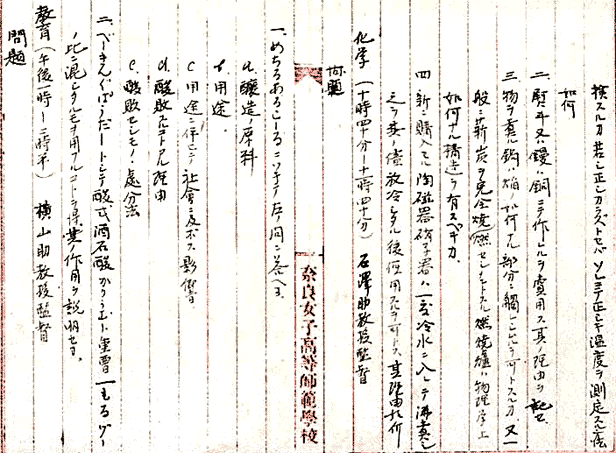 検スルカ若シ正シカラズトセバソレヲ以テ正シキ温度ヲ測定スル法
如何
二、熨斗又ハ鏝ハ銅ニテ作レルヲ賞用ス其ノ理由ヲ記セ
三、物ヲ煮ルニ鍋ハ焔ノ如何ナル部分ニ觸レシムルヲ可トスルカ、又一
般ニ薪炭ヲ完全燃焼セシメントスル燃焼爐ハ物理学上
如何ナル構造ヲ有スベキカ
四、新ニ購入セル陶磁器硝子器ハ一度冷水ニ入レテ沸煮シ
之ヲ其ノ儘放冷シタル後使用スルヲ可トス其理由如何
化学(十時四十分―十時四十分) 石澤助教授監督
問題
一、めちるあるこーるニツキテ左ノ問ニ答ヘヨ
a、醸造ノ原料
b、用途
c 用途ニ伴ヒテ社会ニ及ボス影響
d、酸敗スルコトアル理由
e、酸敗セシモノノ処分法
二、べーきんぐぱうだートシテ酸式酒石酸かりうむト重曹一もるづゝ
ノ比ニ混シタルモノヲ用フルコトヲ得其ノ作用ヲ説明セヨ
教育(午後一時―二時半) 横山助教授監督
問題
奈良女子高等師範學校